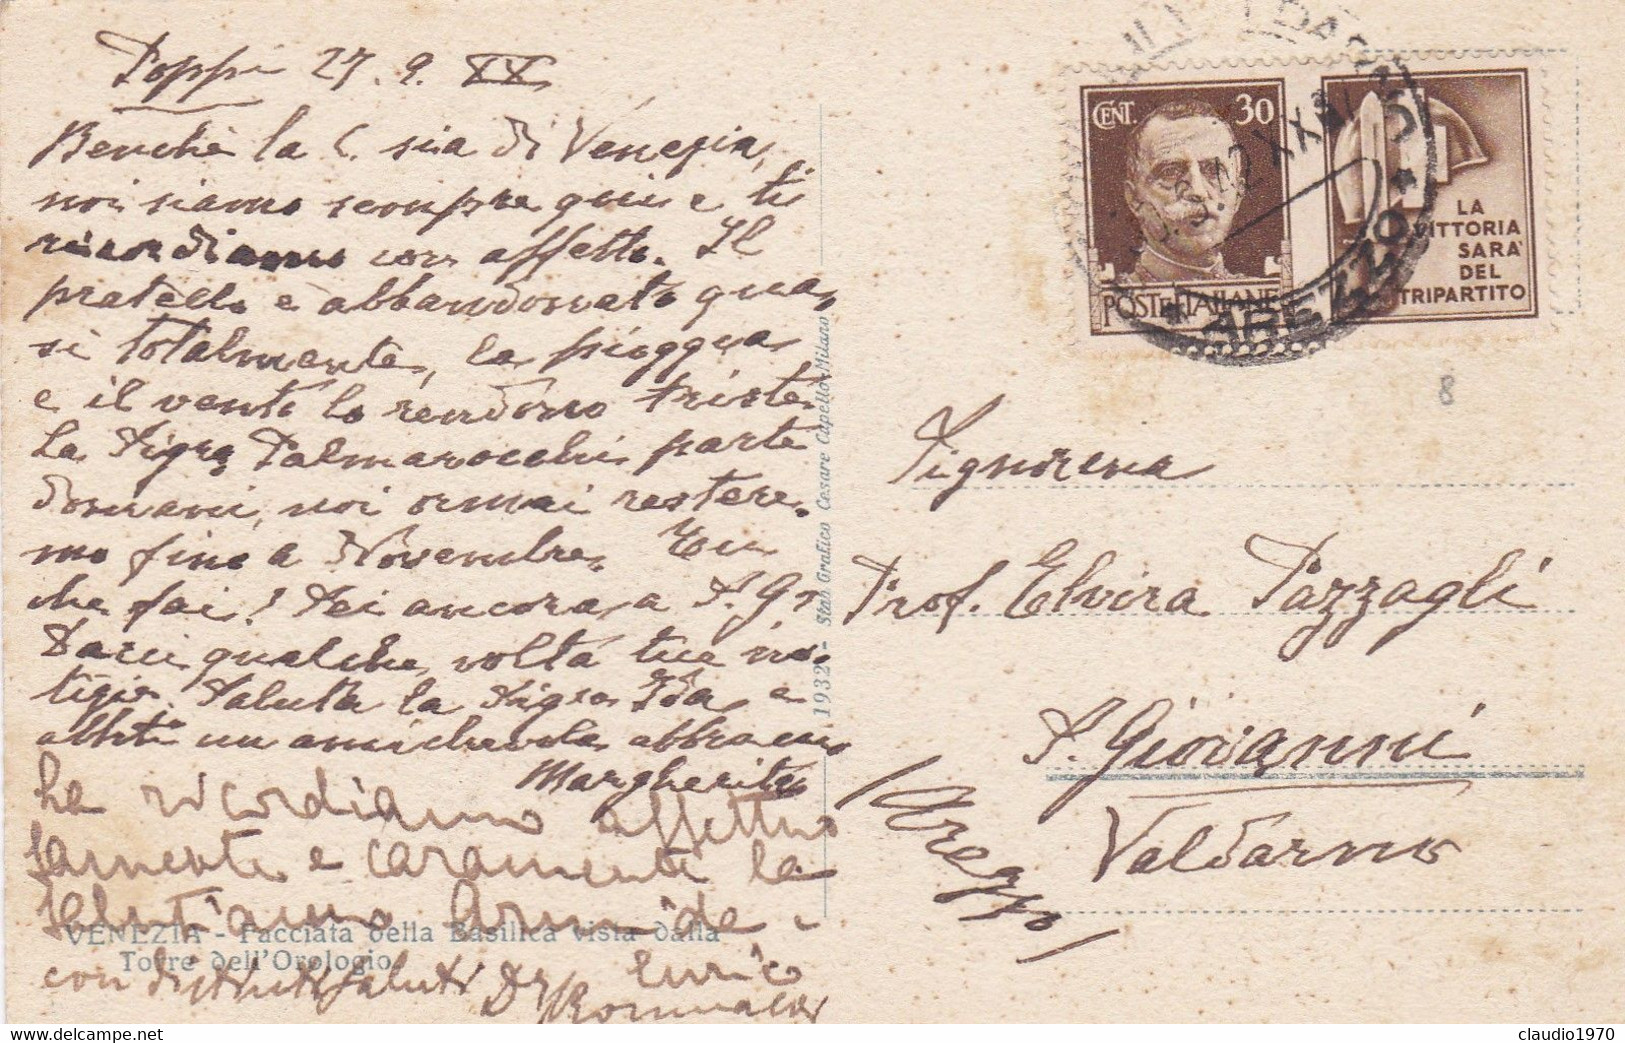 Poppi 27.9.XX
Benchè la C. sia di Venezia,
noi siamo sempre qui e ti
ricordiamo con affetto. Il
pratello è abbandonato qua
si totalmente, la pioggia
e il vento lo rendono triste.
La Sigra Palmarocchi parte
domani, noi ormai restere-
mo fino a Novembre. Tu
che fai? Sei ancora a S. G.?
Dacci qualche volta tue no-
tizie. Saluta la Sigra Ida e
abbiti un amichevole abbraccio
Margherita
La ricordiamo affettuo
samente e caramente la
salutiamo Armida e
Enrico
con distinti saluti Romualdo
VENEZIA - Facciata della Basilica vista dalla
Torre dell'Orologio
1932 - Stab. Grafico Cesare Capello Milano
CENT. 30
POSTE ITALIANE
LA
VITTORIA
SARA'
DEL
TRIPARTITO
AREZZO
8
Signorina
Prof. Elvira Pazzagli
S. Giovanni
Valdarno
(Arezzo)
claudio1970